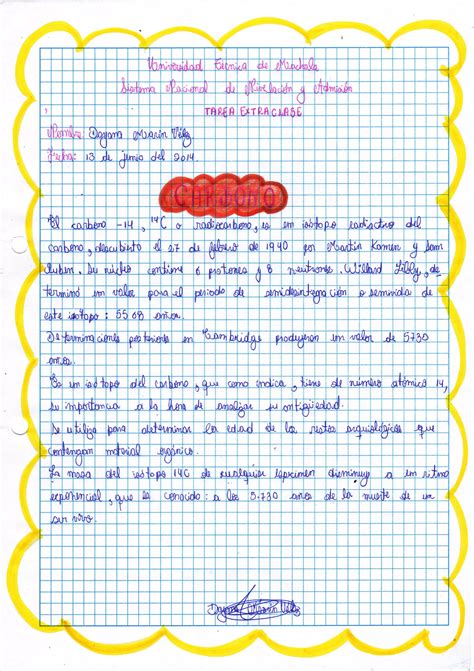 Universidad Técnica de Machala
Sistema Nacional de Nivelación y Admisión
TAREA EXTRACLASE
Nombre: Dayana Marín Vélez
Fecha: 13 de junio del 2014.
CARBONO
El carbono -14, ¹⁴C o radiocarbono, es un isótopo radiactivo del
carbono, descubierto el 27 de febrero de 1940 por Martin Kamen y Sam
Ruben. Su núcleo contiene 6 protones y 8 neutrones. Willard Libby, de-
terminó un valor para el periodo de semidesintegración o semivida de
este isótopo : 5568 años.
Determinaciones posteriores en Cambridge produjeron un valor de 5730
años.
Es un isótopo del carbono, que como indica, tiene de número atómico 14,
su importancia a la hora de analizar su antigüedad.
Se utiliza para determinar la edad de los restos arquiológicos que
contengan material orgánico.
La masa del isótopo 14C de cualquier espécimen disminuye a un ritmo
exponencial, que es conocido : a los 5.730 años de la muerte de un
ser vivo.
Dayana Marín Vélez